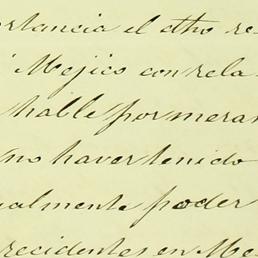 ortancia el otro re-
Mejico con rela-
hable por meran
no haver tenido
ualmente poder
recidentes en Me-